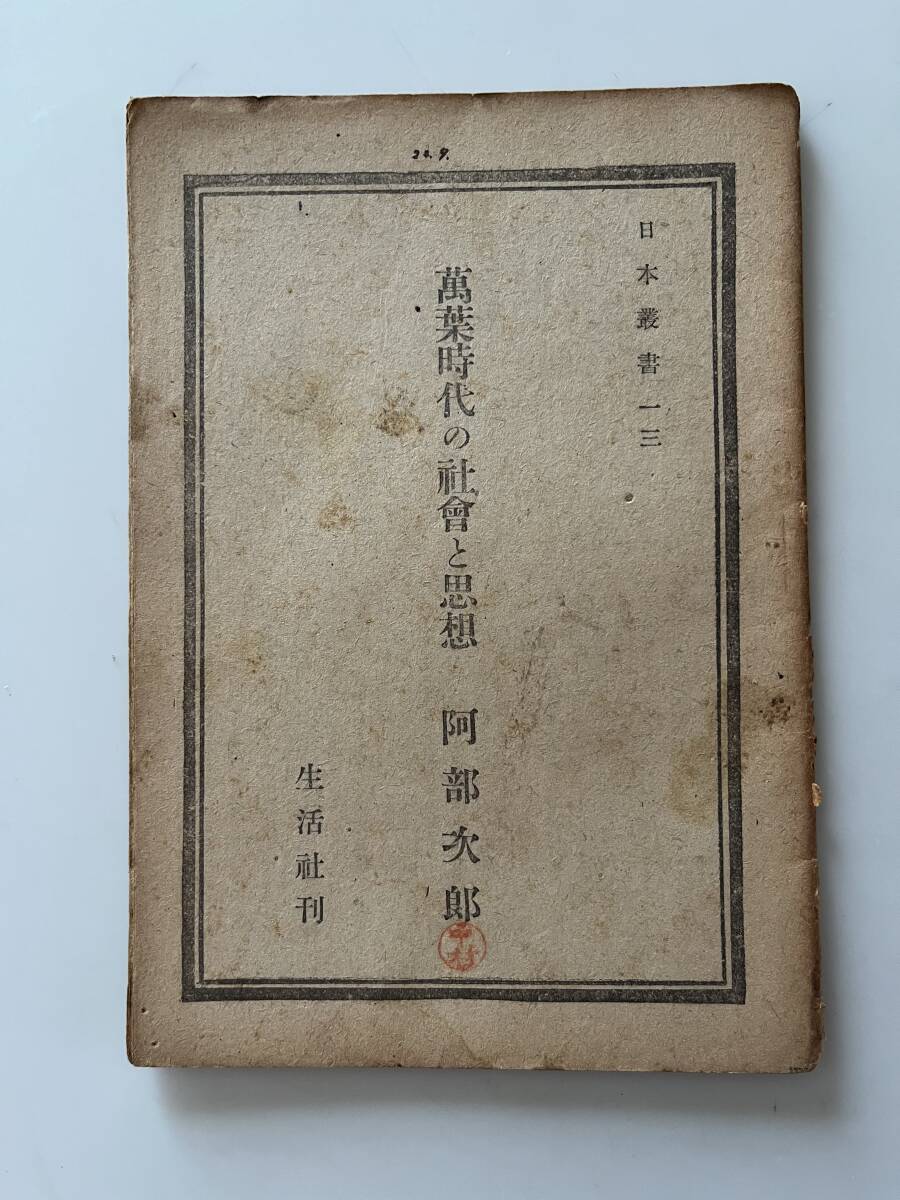 日本叢書一三
萬葉時代の社會と思想　阿部次郎
中村
生活社刊